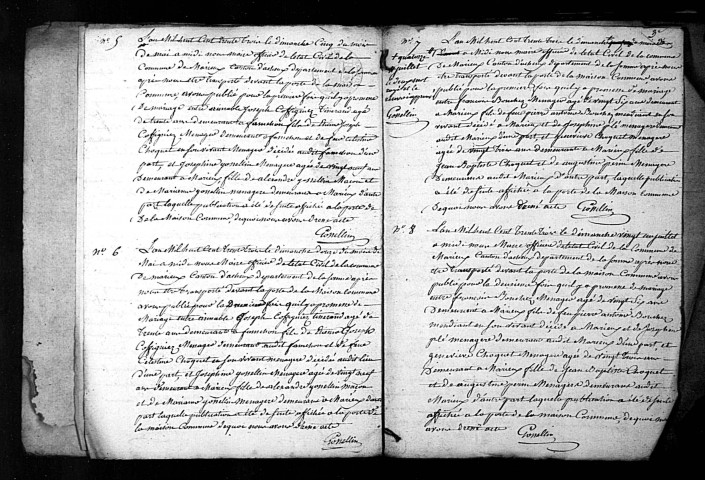 N° 5 L'an Mil huit Cent trente trois le dimanche Cinq du mois
de mai a midi nous maire officier de l'etat Civil de la
Commune de Marieux Canton d'acheux departement de la somme
après nous etre transporté devant la porte de la maison
Commune avons publié pour la premiere fois quil y a promesse
de mariage entre aimable Joseph Coffignier tisserand agé
de trente ans demeurant a famechon fils de Pierre Joseph
Coffignier Menager demeurant a famechon et de feue celestine
Choquet en son vivant Menagere décédée audit famechon d'une
part, et Josephine gosselin Menagere agée de vingt neuf ans
Demeurant a Marieux fille de alexandre gosselin Macon et
de Marianne gosselin menagere demeurans a Marieux d'autre
part laquelle publication a été de suite affichée a la porte de
de la Maison Commune de quoi nous avons Dressé acte
Gosselin
N° 6 L'an Mil huit Cent trente trois le dimanche douze du mois de
Mai a midi nous Maire officier de l'etat Civil de la commune
de marieux Canton d'acheux departement de la somme après
nous etre transporté devant la porte de la Maison commune
avons publié pour la Deuxieme fois quil y a promesse de
Mariage entre aimable Joseph Coffignier tisserand agé de
trente ans demeurant a famechon fils de Pierre Joseph
Coffignier Menager demeurant audit famechon et de feue
Celestine Choquet en son vivant menagere décédée audit lieu
d'une part, et Josephine gosselin Menagere agée de vingt neuf
ans Demeurant a Marieux fille de alexandre gosselin maçon
et de Marianne gosselin Menagere demeurans a Marieux d'autre
part laquelle publication a été de suite affichée a la porte de
la maison Commune de quoi nous avons Dressé acte
Gosselin
N° 7 L'an Mil huit Cent trente trois le dimanche
quatorze juillet a Midi nous maire officier de l'etat Civil de la commune
de Marieux Canton d'acheux departement de la somme après nous
etre transporté devant la porte de la maison Commune avons
publié pour la premiere fois quil y a promesse de mariage
entre francois Bouchez Menager agé de vingt Six ans demeurant
a Marieux fils de feu pierre antoine Bouchez mendiant en son
vivant décédé a Marieux et de Josephine plé menagere demeurant
audit Marieux d'une part et genevieve Choquet menagere
agée de vingt trois ans demeurant a Marieux fille de
Jean Baptiste Choquet et de augustine perin Menagere
Demeurans audit Marieux d'autre part, laquelle publication
a été de suite affichée a la porte de la Maison commune
de quoi nous avons Dressé acte
Gosselin
N° 8 L'an Mil huit Cent trente trois le dimanche vingt un juillet
a midi nous Maire officier de l'etat Civil de la Commune de
Marieux Canton d'acheux departement de la somme après nous
etre transporté devant la porte de la Maison Commune avons
publié pour la deuxieme fois quil y a promesse de mariage
entre francois Bouchez Menager agé de vingt Six ans
Demeurant a Marieux fils de feu pierre antoine Bouchez
mendiant en son vivant décédé a Marieux et de Josephine
plé menagere demeurant audit Marieux d'une part et
genevieve Choquet Menagere agée de vingt trois ans
Demeurant a Marieux fille de Jean Baptiste Choquet
et de augustine perin Menagere demeurans audit
Marieux d'autre part laquelle publication a été de suite
affichée a la porte de la maison Commune, de quoi nous
avons dressé acte
Gosselin